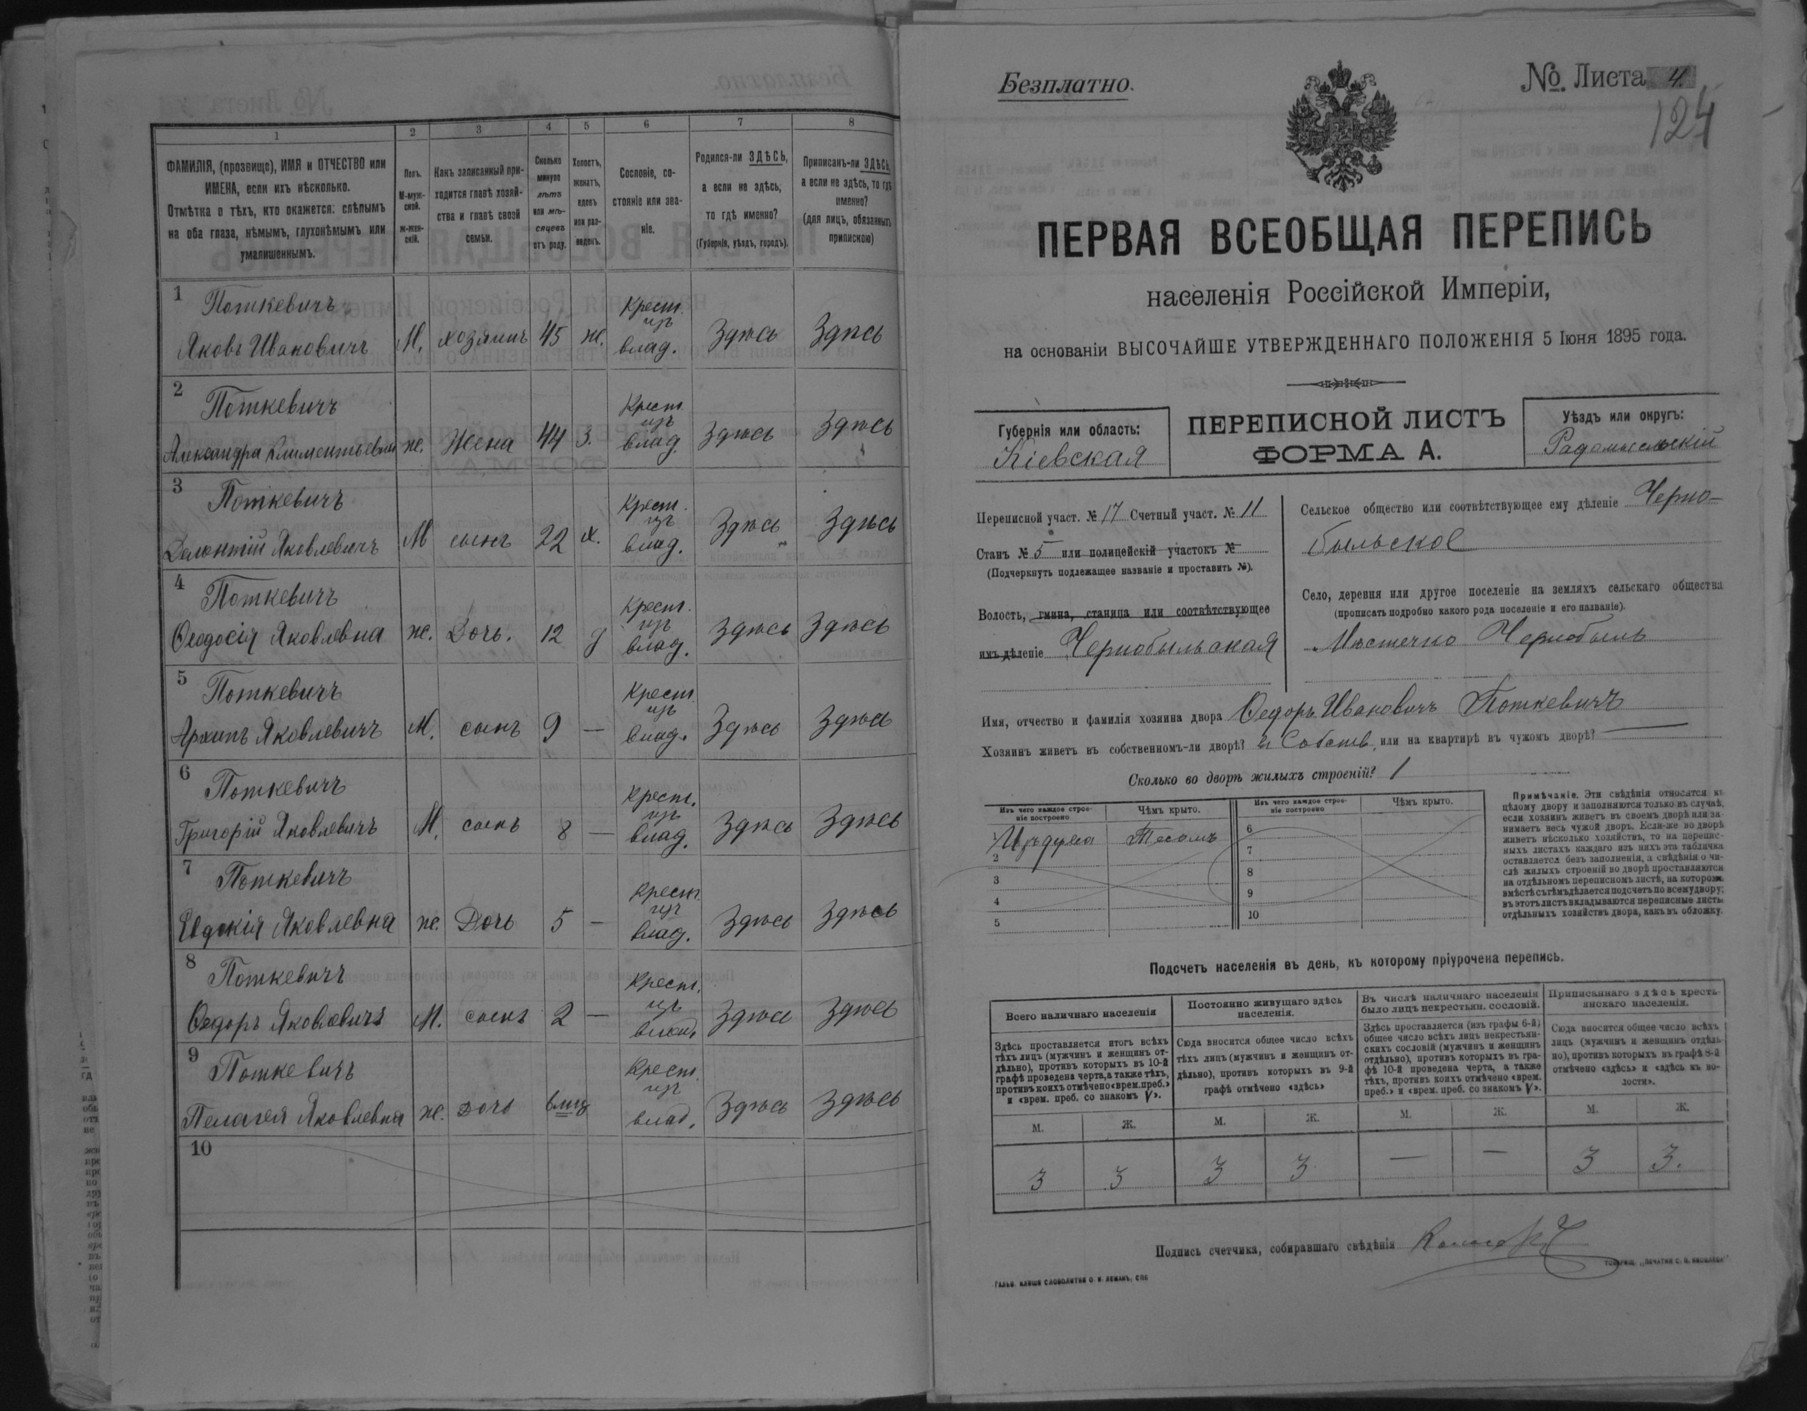 1
2
3
4
5
6
7
8
ФАМИЛІЯ, (прозвище), ИМЯ и ОТЧЕСТВО или
ИМЕНА, если ихъ нѣсколько.
Отмѣтка о тѣхъ, кто окажется: слѣпымъ
на оба глаза, нѣмымъ, глухонѣмымъ или
умалишеннымъ.
Полъ.
М-муж-
ской.
Ж-жен-
скій.
Какъ записанный при-
ходится главѣ хозяй-
ства и главѣ своей
семьи.
Сколько
минуло
лѣтъ
или мѣ-
сяцевъ
отъ роду.
Холостъ,
женатъ,
вдовъ
или раз-
веденъ.
Сословіе, со-
стояніе или зва-
ніе.
Родился-ли ЗДѢСЬ,
а если не здѣсь,
то гдѣ именно?
(Губернія, уѣздъ, городъ).
Приписанъ-ли ЗДѢСЬ,
а если не здѣсь, то гдѣ
именно?
(для лицъ, обязанныхъ
припискою)
1
Поткевичъ
Яковъ Ивановичъ М. хозяинъ 45 ж. Крест. изъ влад. Здѣсь Здѣсь
2
Поткевичъ
Александра Климентьевна ж. Жена 44 З. Крест. изъ влад. Здѣсь Здѣсь
3
Поткевичъ
Яковлевичъ М сынъ 22 х. Крест. изъ влад. Здѣсь Здѣсь
4
Поткевичъ
Ѳеодосія Яковлевна ж. Дочь. 12 д Крест. изъ влад. Здѣсь Здѣсь
5
Поткевичъ
Архипъ Яковлевичъ М. сынъ 9 — Крест. изъ влад. Здѣсь Здѣсь
6
Поткевичъ
Григорій Яковлевичъ М. сынъ 8 — Крест. изъ влад. Здѣсь Здѣсь
7
Поткевичъ
Евдокія Яковлевна ж. Дочь 5 — Крест. изъ влад. Здѣсь Здѣсь
8
Поткевичъ
Ѳедоръ Яковлевичъ М. сынъ 2 — Крест. изъ влад. Здѣсь Здѣсь
9
Поткевичъ
Пелагея Яковлевна ж. Дочь Крест. изъ влад. Здѣсь Здѣсь
10
Безплатно.
№. Листа 4.
124
ПЕРВАЯ ВСЕОБЩАЯ ПЕРЕПИСЬ
населенія Россійской Имперіи,
на основаніи ВЫСОЧАЙШЕ УТВЕРЖДЕННАГО ПОЛОЖЕНІЯ 5 Іюня 1895 года.
Губернія или область:
Кіевская
ПЕРЕПИСНОЙ ЛИСТЪ
ФОРМА А.
Уѣздъ или округъ:
Радомысльскій
Переписной участ. № 17 Счетный участ. № 11
Станъ № 5 или полицейскій участокъ №
(Подчеркнуть подлежащее названіе и проставить №).
Волость, гмина, станица или соотвѣтствующее
имъ дѣленіе Чернобыльская
Сельское общество или соотвѣтствующее ему дѣленіе Черно-
быльское
Село, деревня или другое поселеніе на земляхъ сельскаго общества
(прописать подробно какого рода поселеніе и его названіе).
Мѣстечко Чернобыль
Имя, отчество и фамилія хозяина двора Ѳедоръ Ивановичъ Поткевичъ
Хозяинъ живетъ въ собственномъ-ли дворѣ? въ Собств. или на квартирѣ въ чужомъ дворѣ? —
Сколько во дворѣ жилыхъ строеній? 1
Изъ чего каждое строе-
ніе построено
Чѣмъ крыто.
Изъ чего каждое строе-
ніе построено
Чѣмъ крыто.
Изъ дерева Тесомъ
2
3
4
5
6
7
8
9
10
Примѣчаніе. Эти свѣдѣнія относятся къ
цѣлому двору и заполняются только въ случаѣ,
если хозяинъ живетъ въ своемъ дворѣ или за-
нимаетъ весь чужой дворъ. Если-же во дворѣ
живетъ нѣсколько хозяйствъ, то на перепис-
ныхъ листахъ каждаго изъ нихъ эта табличка
оставляется безъ заполненія, а свѣдѣнія о чи-
слѣ жилыхъ строеній во дворѣ проставляются
на отдѣльномъ переписномъ листѣ, на которомъ
вмѣстѣ съ тѣмъ дѣлается подсчетъ по всему двору;
въ этотъ листъ вкладываются переписные листы
отдѣльныхъ хозяйствъ двора, какъ въ обложку.
Подсчетъ населенія въ день, къ которому пріурочена перепись.
Всего наличнаго населенія
Постоянно живущаго здѣсь
населенія.
Въ числѣ наличнаго населенія
было лицъ некрестьян. сословій.
Приписаннаго здѣсь кресть-
янскаго населенія.
Здѣсь проставляется итогъ всѣхъ
тѣхъ лицъ (мужчинъ и женщинъ от-
дѣльно), противъ которыхъ въ 10-й
графѣ проведена черта, а также тѣхъ,
противъ коихъ отмѣчено «врем. преб.»
и «врем. преб. со знакомъ V».
Сюда вносится общее число всѣхъ
тѣхъ лицъ (мужчинъ и женщинъ от-
дѣльно), противъ которыхъ въ 9-й
графѣ отмѣчено «здѣсь»
Здѣсь проставляется (изъ графы 6-й)
общее число всѣхъ лицъ некрестьян-
скихъ сословій (мужчинъ и женщинъ
отдѣльно), противъ которыхъ въ гра-
фѣ 10-й проведена черта, а также
тѣхъ, противъ коихъ отмѣчено «врем.
преб.» и «врем. преб. со знакомъ V».
Сюда вносится общее число всѣхъ
лицъ (мужчинъ и женщинъ отдѣль-
но), противъ которыхъ въ графѣ 8-й
отмѣчено «здѣсь» и «здѣсь къ во-
лости».
М. Ж. М. Ж. М. Ж. М. Ж.
3 3 3 3 — — 3 3.
Подпись счетчика, собиравшаго свѣдѣнія